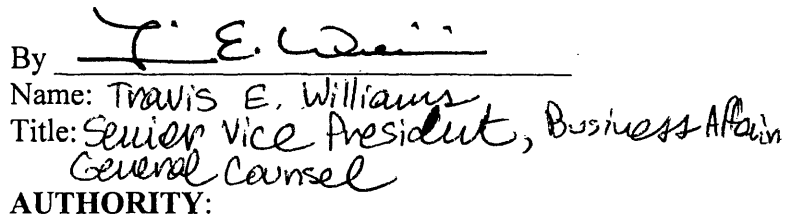 By T. E. Williams
Name: Travis E. Williams
Title: Senior Vice President, Business Affairs
General Counsel
AUTHORITY: